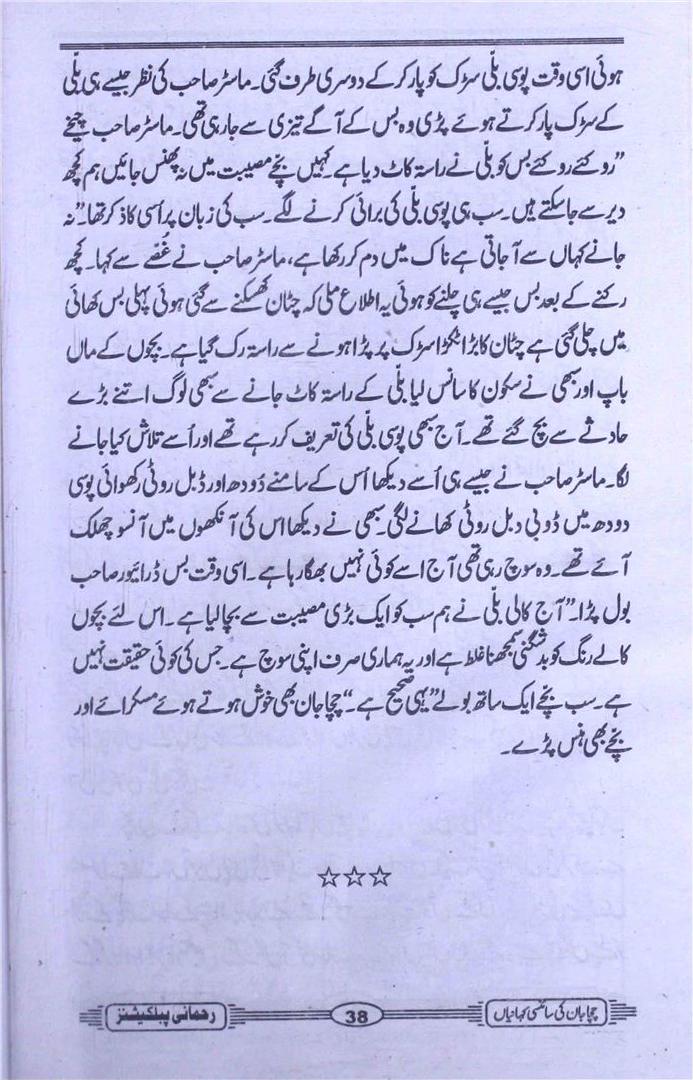 ہوئی اسی وقت پوسی بلّی سڑک کو پار کر کے دوسری طرف گئی۔ ماسٹر صاحب کی نظر جیسے ہی بلّی
کے سڑک پار کرتے ہوئے پڑی وہ بس کے آگے تیزی سے جا رہی تھی۔ ماسٹر صاحب چیخے
”روکئے روکئے بس کو بلّی نے راستہ کاٹ دیا ہے۔ کہیں بچے مصیبت میں نہ پھنس جائیں ہم کچھ
دیر سے جا سکتے ہیں۔ سب ہی پوسی بلّی کی برائی کرنے لگے۔ سب کی زبان پر اُسی کا ذکر تھا۔ ”نہ
جانے کہاں سے آ جاتی ہے ناک میں دم کر رکھا ہے، ماسٹر صاحب نے غُصّے سے کہا۔ کچھ
رکنے کے بعد بس جیسے ہی چلنے کو ہوئی یہ اطلاع ملی کہ چٹان کھسکنے سے گئی ہوئی پہلی بس کھائی
میں چلی گئی ہے چٹان کا بڑا ٹکڑا سڑک پر پڑا ہونے سے راستہ رک گیا ہے۔ بچوں کے ماں
باپ اور سبھی نے سکون کا سانس لیا بلّی کے راستہ کاٹ جانے سے سبھی لوگ اتنے بڑے
حادثے سے بچ گئے تھے۔ آج سبھی پوسی بلّی کی تعریف کر رہے تھے اور اُسے تلاش کیا جانے
لگا۔ ماسٹر صاحب نے جیسے ہی اُسے دیکھا اُس کے سامنے دُودھ اور ڈبل روٹی رکھوائی پوسی
دودھ میں ڈوبی دبل روٹی کھانے لگی۔ سبھی نے دیکھا اس کی آنکھوں میں آنسو چھلک
آئے تھے۔ وہ سوچ رہی تھی آج اسے کوئی نہیں بھگا رہا ہے۔ اسی وقت بس ڈرائیور صاحب
بول پڑا۔ ”آج کالی بلّی نے ہم سب کو ایک بڑی مصیبت سے بچا لیا ہے۔ اس لئے بچوں
کالے رنگ کو بدشگنی سمجھنا غلط ہے اور یہ ہماری صرف اپنی سوچ ہے۔ جس کی کوئی حقیقت نہیں
ہے۔ سب بچے ایک ساتھ بولے ”یہی صحیح ہے۔“ چچا جان بھی خوش ہوتے ہوئے مسکرائے اور
بچے بھی ہنس پڑے۔
☆☆☆
چچا جان کی سائنسی کہانیاں
38
رحمانی پبلکیشنز